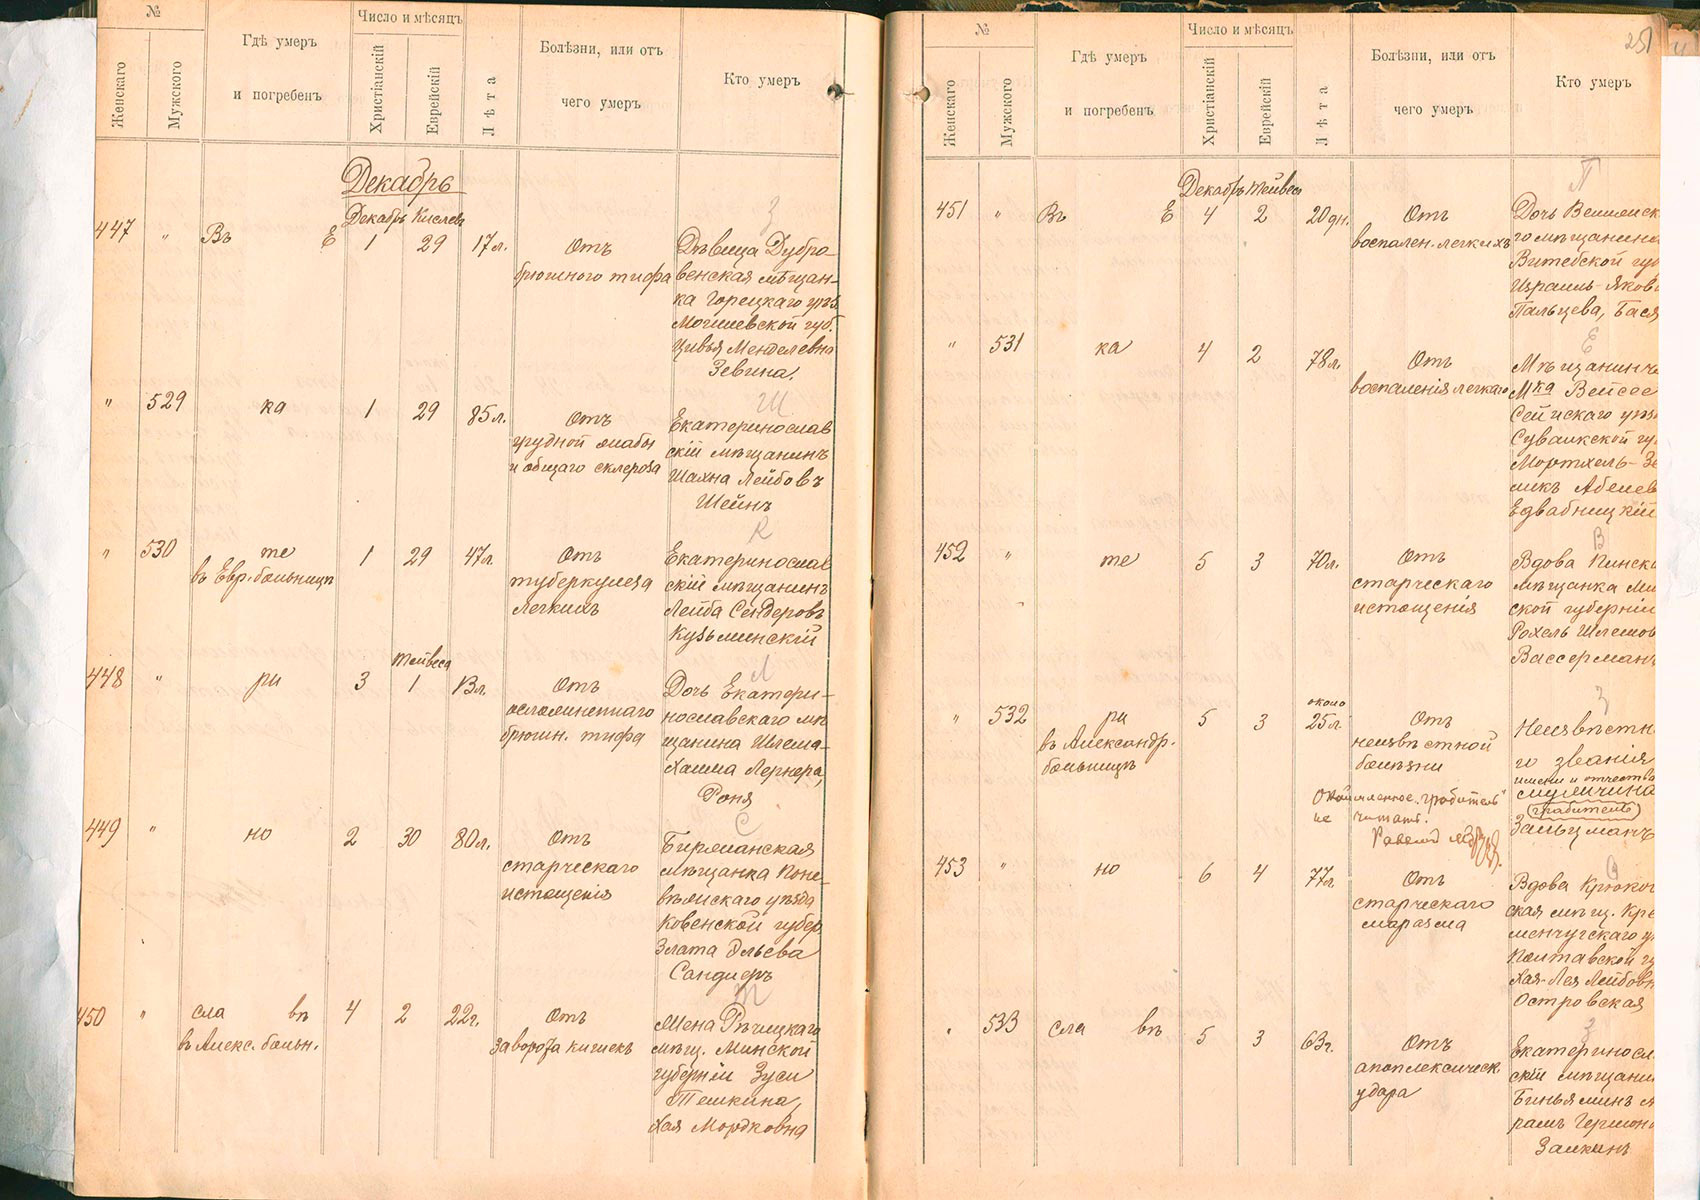 №
Женскаго
Мужского
Гдѣ умеръ
и погребенъ
Число и мѣсяцъ
Христіанскій
Еврейскій
Лѣта
Болѣзни, или отъ
чего умеръ
Кто умеръ
Декабрь
Декабрь Кислевъ
З
447 " Въ Е 1 29 17 л.
Отъ
брюшного тифа
Дѣвица Дубро-
венская мѣщан-
ка Горецкаго уѣз.
Могилевской губ.
Цивья Менделевна
Зевина.
Ш
" 529 ка 1 29 85 л.
Отъ
грудной жабы
и общаго склероза
Екатеринослав
скій мѣщанинъ
Шахна Лейбовъ
Шейнъ
К
" 530 те 1 29 47 л.
въ Евр. больницѣ
Отъ
туберкулеза
легкихъ
Екатеринослав
скій мѣщанинъ
Лейба Сендеровъ
Кузьминскій
Тейвеса
Л
448 " ри 3 1 13 л.
Отъ
осложненнаго
брюшн. тифа
Дочь Екатери-
нославскаго мѣ
щанина Шлема-
Хаима Лернера,
Роня
С
449 " но 2 30 80 л.
Отъ
старческаго
истощенія
Биржанская
мѣщанка Поне-
вѣжскаго уѣзда
Ковенской губер.
Злата Эльева
Сандлеръ
Т
450 " сла вѣ 4 2 22 г.
въ Алекс. больн.
Отъ
заворота кишекъ
Жена Рѣчицкаго
мѣщ. Минской
губерніи Зуси
Темкина,
Хая Мордковна
251
№
Женскаго
Мужского
Гдѣ умеръ
и погребенъ
Число и мѣсяцъ
Христіанскій
Еврейскій
Лѣта
Болѣзни, или отъ
чего умеръ
Кто умеръ
Декабрь Тейвеса
П
451 " Въ Е 4 2 20 дн.
Отъ
воспален. легкихъ
Дочь Велижск
го мѣщанина
Витебской гу
Израиль-Яков
Пальцева, Бася
Е
" 531 ка 4 2 78 л.
Отъ
воспаленія легкаго
Мѣщанинъ
М-ка Вейсее
Сейнскаго уѣз
Сувалкской гу
Мортхель-Зе
ликъ Абелев
Едвабницкій
В
452 " те 5 3 70 л.
Отъ
старческаго
истощенія
Вдова Пинска
мѣщанка Ми
ской губерніи
Рохель Шлемов
Вассерманъ
З
около
" 532 ри 5 3 25 л.
въ Александр.
больницѣ
Отъ
неизвѣстной
болѣзни
Неизвѣстн
го званія
имени и отчества
мужчина
"грабитель"
Зальцманъ
"грабитель"
не читать.
С
453 " но 6 4 77 л.
Отъ
старческаго
маразма
Вдова Крюков
ская мѣщ. Кре
менчугскаго у
Полтавской г
Хая-Лея Лейбовн
Островская
З
" 533 сла вѣ 5 3 63 г.
Отъ
апоплексическ.
удара
Екатериносл
скій мѣщани
Биньяминъ
Залкинъ